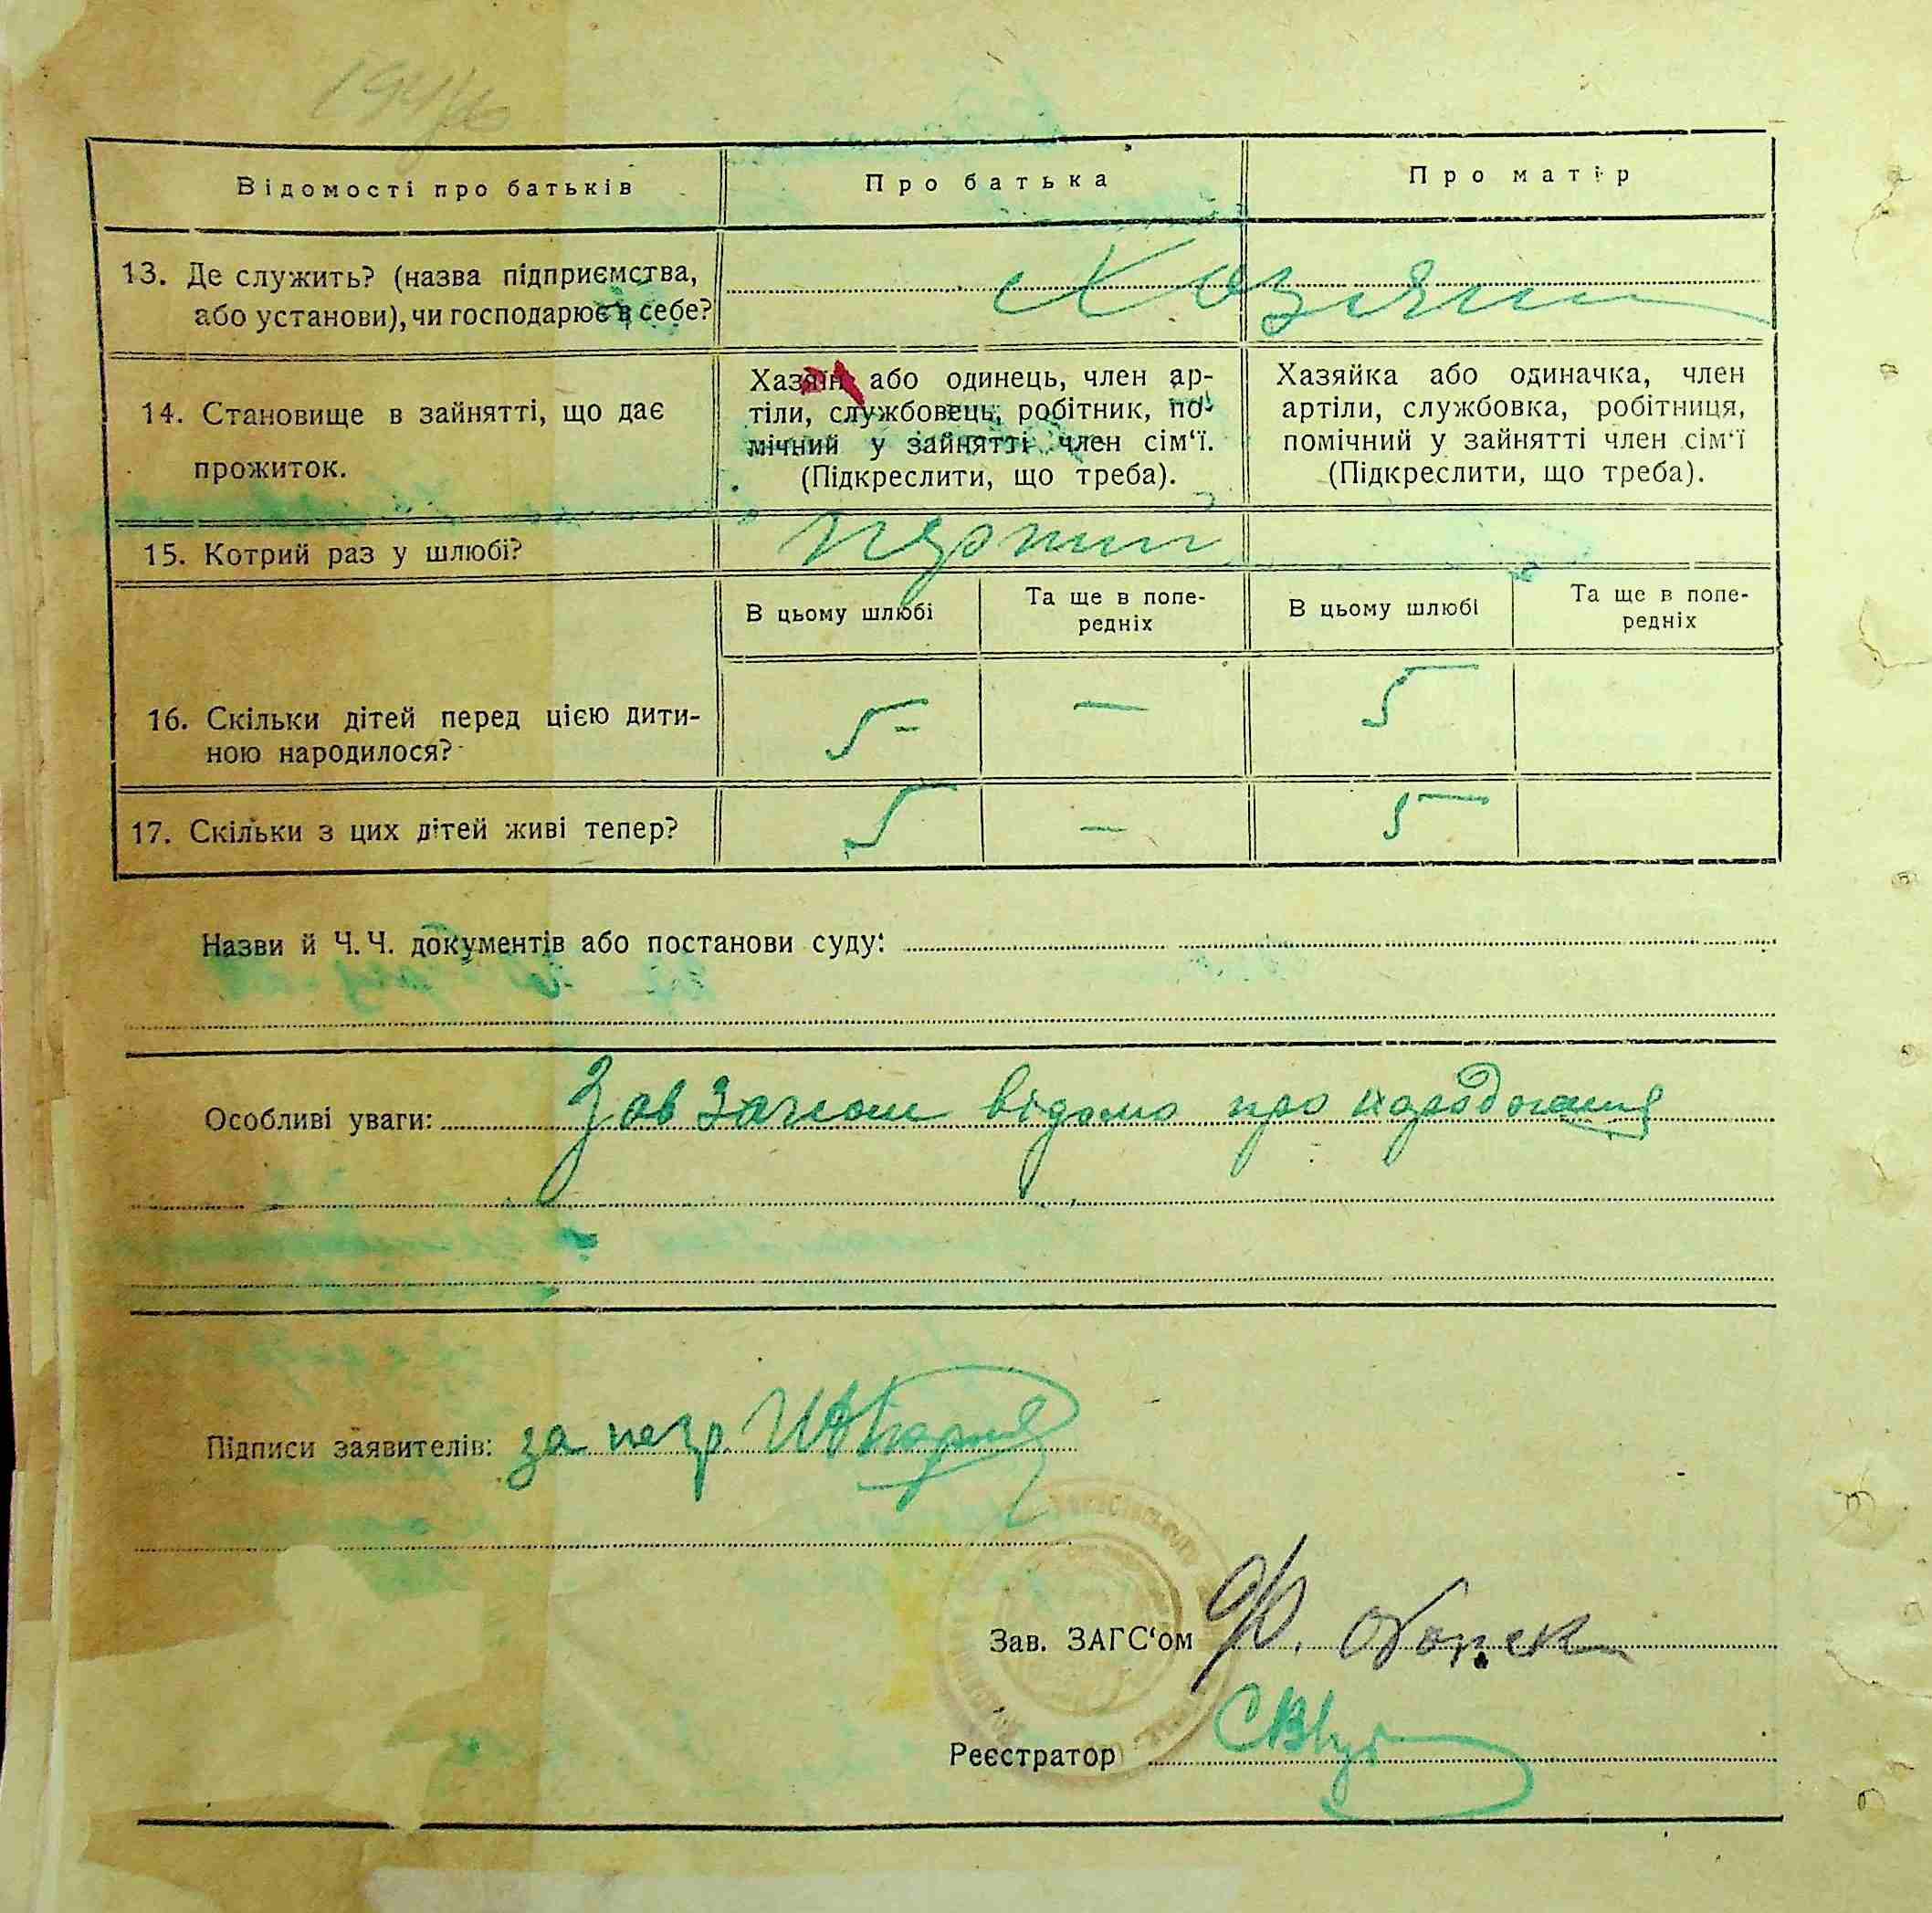 Відомості про батьків
Про батька
Про матір
13. Де служить? (назва підприємства,
або установи), чи господарює в себе?
14. Становище в зайнятті, що дає
прожиток.
Хазяїн або одинець, член ар-
тіли, службовець, робітник, по-
мічний у зайнятті член сім‘ї.
(Підкреслити, що треба).
Хазяйка або одиначка, член
артіли, службовка, робітниця,
помічний у зайнятті член сім‘ї
(Підкреслити, що треба).
15. Котрий раз у шлюбі?
В цьому шлюбі
Та ще в попе-
редніх
В цьому шлюбі
Та ще в попе-
редніх
16. Скільки дітей перед цією дити-
ною народилося?
5 – — 5
17. Скільки з цих дітей живі тепер? 5 — 5
Назви й Ч. Ч. документів або постанови суду:
Особливі уваги: відомо про народження
Підписи заявителів: за негр.
Зав. ЗАГС‘ом
Реєстратор